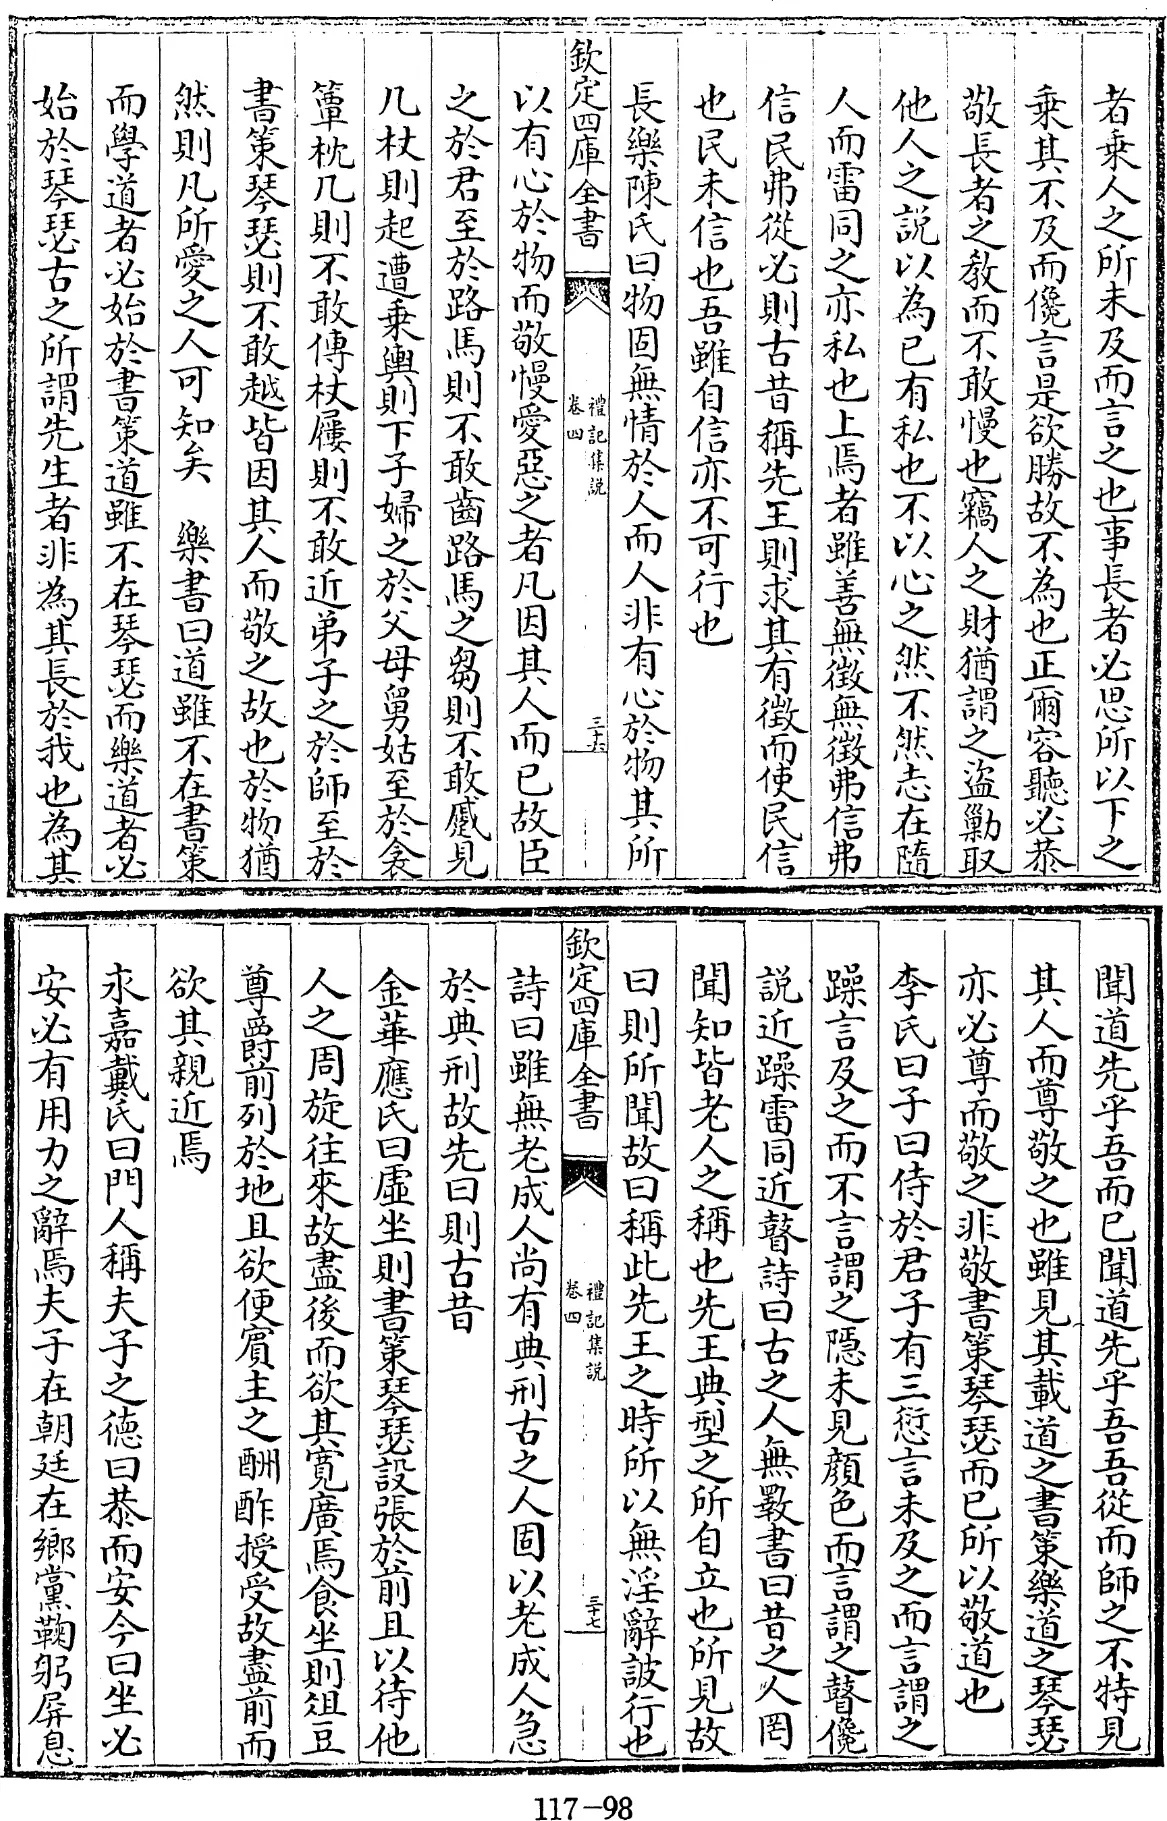 者乗人之所未及而言之也事長者必思所以下之
乗其不及而儳言是欲勝故不為也正爾容聽必恭
敬長者之教而不敢慢也竊人之財猶謂之盜勦取
他人之説以為已有私也不以心之然不然志在隨
人而雷同之亦私也上焉者雖善無徴無徴弗信弗
信民弗從必則古昔稱先王則求其有徴而使民信
也民未信也吾雖自信亦不可行也
長樂陳氏曰物固無情於人而人非有心於物其所
欽定四庫全書
禮記集説
卷四
三十六
以有心於物而敬慢愛惡之者凡因其人而已故臣
之於君至於路馬則不敢齒路馬之芻則不敢蹙見
几杖則起遭乗輿則下子婦之於父母舅姑至於衾
簟枕几則不敢傳杖屨則不敢近弟子之於師至於
書策琴瑟則不敢越皆因其人而敬之故也於物猶
然則凡所愛之人可知矣　樂書曰道雖不在書策
而學道者必始於書策道雖不在琴瑟而樂道者必
始於琴瑟古之所謂先生者非為其長於我也為其
聞道先乎吾而已聞道先乎吾吾從而師之不特見
其人而尊敬之也雖見其載道之書策樂道之琴瑟
亦必尊而敬之非敬書策琴瑟而已所以敬道也
李氏曰子曰侍於君子有三愆言未及之而言謂之
躁言及之而不言謂之隱未見顔色而言謂之瞽儳
説近躁雷同近瞽詩曰古之人無斁書曰昔之人罔
聞知皆老人之稱也先王典型之所自立也所見故
曰則所聞故曰稱此先王之時所以無淫辭詖行也
欽定四庫全書
禮記集説
卷四
三十七
詩曰雖無老成人尚有典刑古之人固以老成人急
於典刑故先曰則古昔
金華應氏曰虛坐則書策琴瑟設張於前且以待他
人之周旋往來故盡後而欲其寛廣焉食坐則俎豆
尊爵前列於地且欲便賓主之酬酢授受故盡前而
欲其親近焉
永嘉戴氏曰門人稱夫子之德曰恭而安今曰坐必
安必有用力之辭焉夫子在朝廷在鄉黨鞠躬屏息
117-98